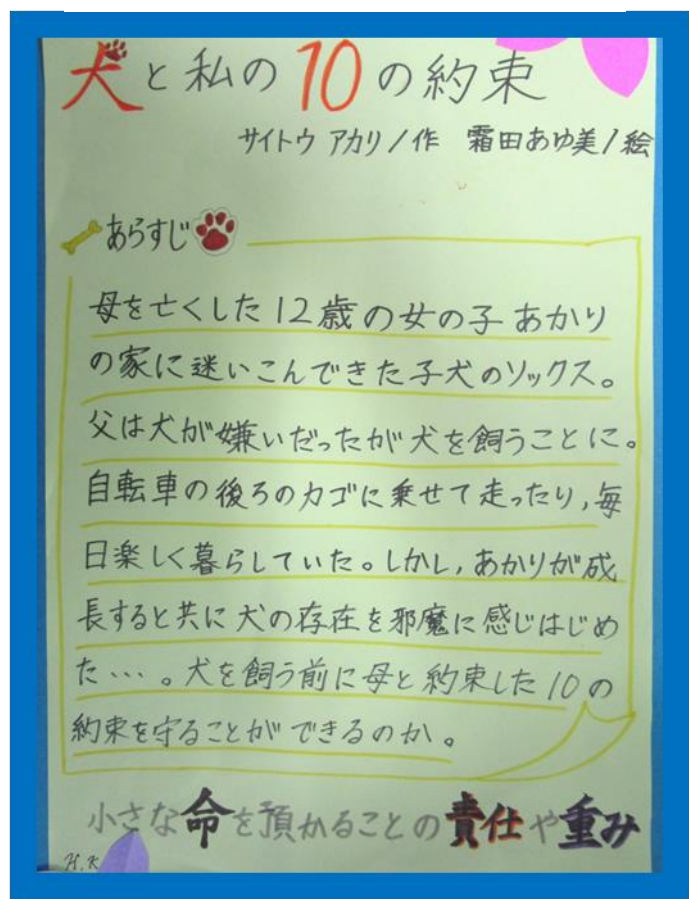 犬と私の10の約束
サイトウ アカリ/作 霜田あゆ美/絵
あらすじ
母を亡くした12歳の女の子あかり
の家に迷いこんできた子犬のソックス。
父は犬が嫌いだったが犬を飼うことに。
自転車の後ろのカゴに乗せて走ったり,毎
日楽しく暮らしていた。しかし,あかりが成
長すると共に犬の存在を邪魔に感じはじめ
た…。犬を飼う前に母と約束した10の
約束を守ることができるのか。
小さな命を預かることの責任や重み
H.K